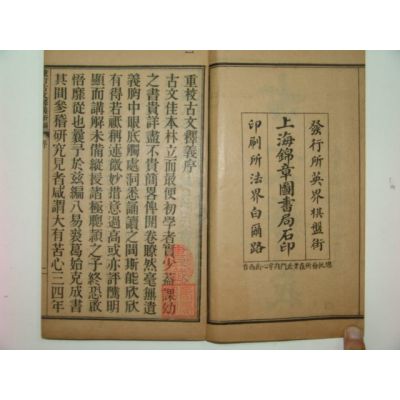 發行所英界棋盤街
上海錦章圖書局石印
印刷所法界白爾路
重校古文釋義序
古文佳本林立而最便初學者實少蓋課幼
之書貴詳盡不貴簡畧俾開卷瞭然毫無遺
義胸中眼底觸處洞悉誦讀之間斯能欣欣
有得若祗稱述微妙措意過高或亦評隲明
顯而講解未備縱授諸極聰穎之子終恐啟
悟靡從也曩予於茲編八易裘葛始克成書
其間參稽研究見者咸謂大有苦心三四年